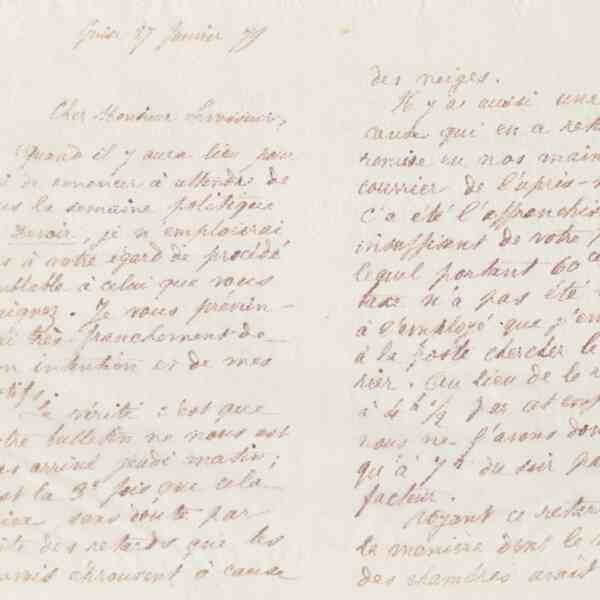 Guise 27 Janvier 79
Cher Monsieur
Quand il y aura lieu pour
de renoncer à attendre de
la semaine politique
Devoir, je n'emploierai
à votre égard de procédé
semblable à celui que vous
. Je vous prévien-
très franchement de
mon intention et de mes
motifs.
La vérité c'est que
votre bulletin ne nous est
pas arrivé jeudi matin;
c'est la 3e fois que cela
arrive sans doute par
suite des retards que les
éprouvent à cause
des neiges.
Il y a aussi une
cause qui en a reta
remise en nos main
courrier de l'après-m
c'a été l'affranchis
insuffisant de votre
lequel portant 60 c
taxe n'a pas été
à l'employé que j'en
à la poste chercher le
rier. Au lieu de le r
à 4 h ½ par cet emp
nous ne l'avons don
qu'à 7 h du soir pa
facteur.
Voyant ce retar
la manière dont le
des chambres avait